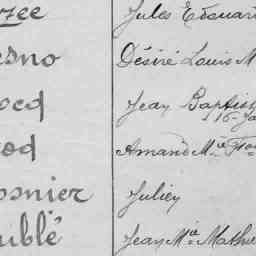 zee Jules Edouard
esno Désiré Louis M
ocq Jean Baptist
16
od Amand Mie Fran
osnier Julien
ublé Jean Mie Mathu